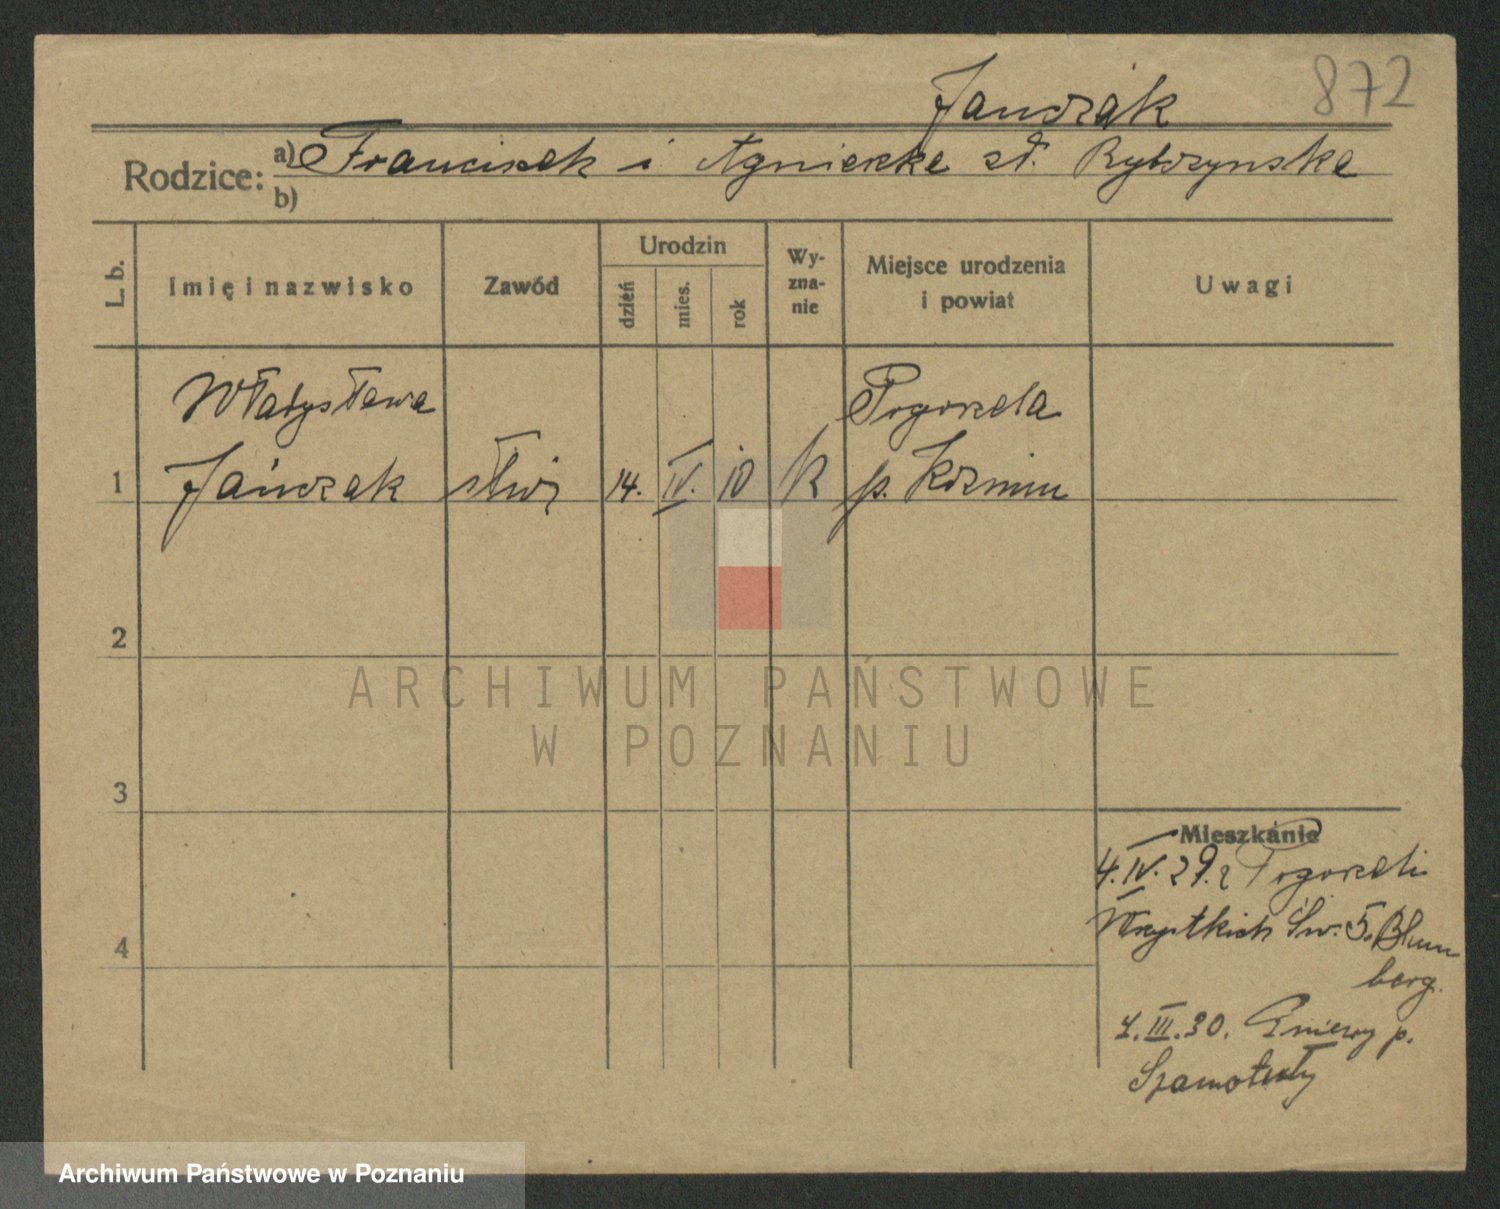 872
Janczak
Rodzice: a) Franciszek i Agnieszka zd. Rybczynska
b)
L. b. Imię i nazwisko Zawód Urodzin Wy-zna-nie Miejsce urodzenia i powiat Uwagi
dzień mies. rok
Władysława Pogorzela
1 Janczak służ 14. IV. 10 K p. Kozmin
2
3
4
Mieszkanie
4. IV. 29. z Pogorzeli
Wszystkich Św. 5. Blum
berg.
III. 30. p.
Szamotuły
ARCHIWUM PAŃSTWOWE
W POZNANIU
Archiwum Państwowe w Poznaniu